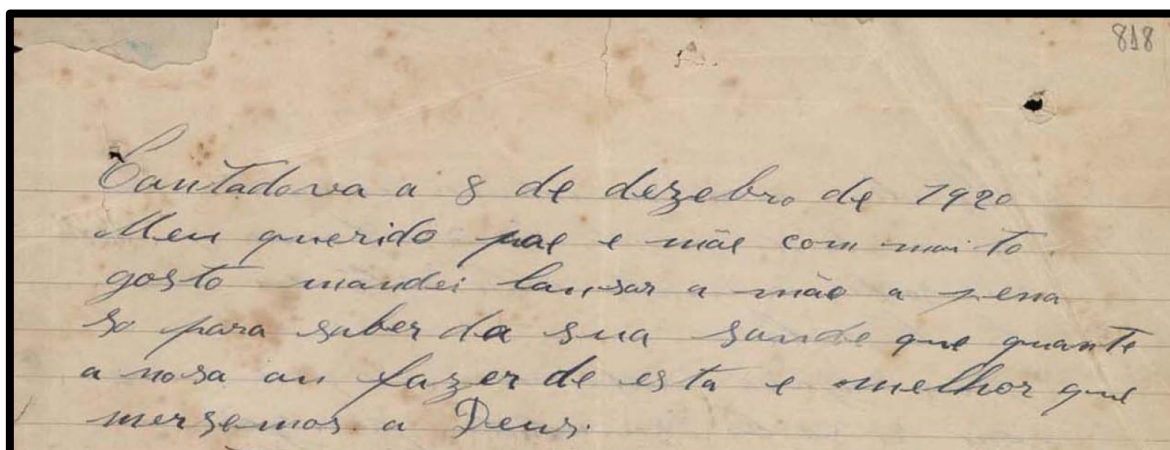 818
Cantadova a 8 de dezebro de 1920
Meu querido pae e mãe com muito
gosto mandei lansar a mão a pena
so para saber da sua saude que quante
a nosa au fazer de esta e omelhor que
mersemos a Deus.